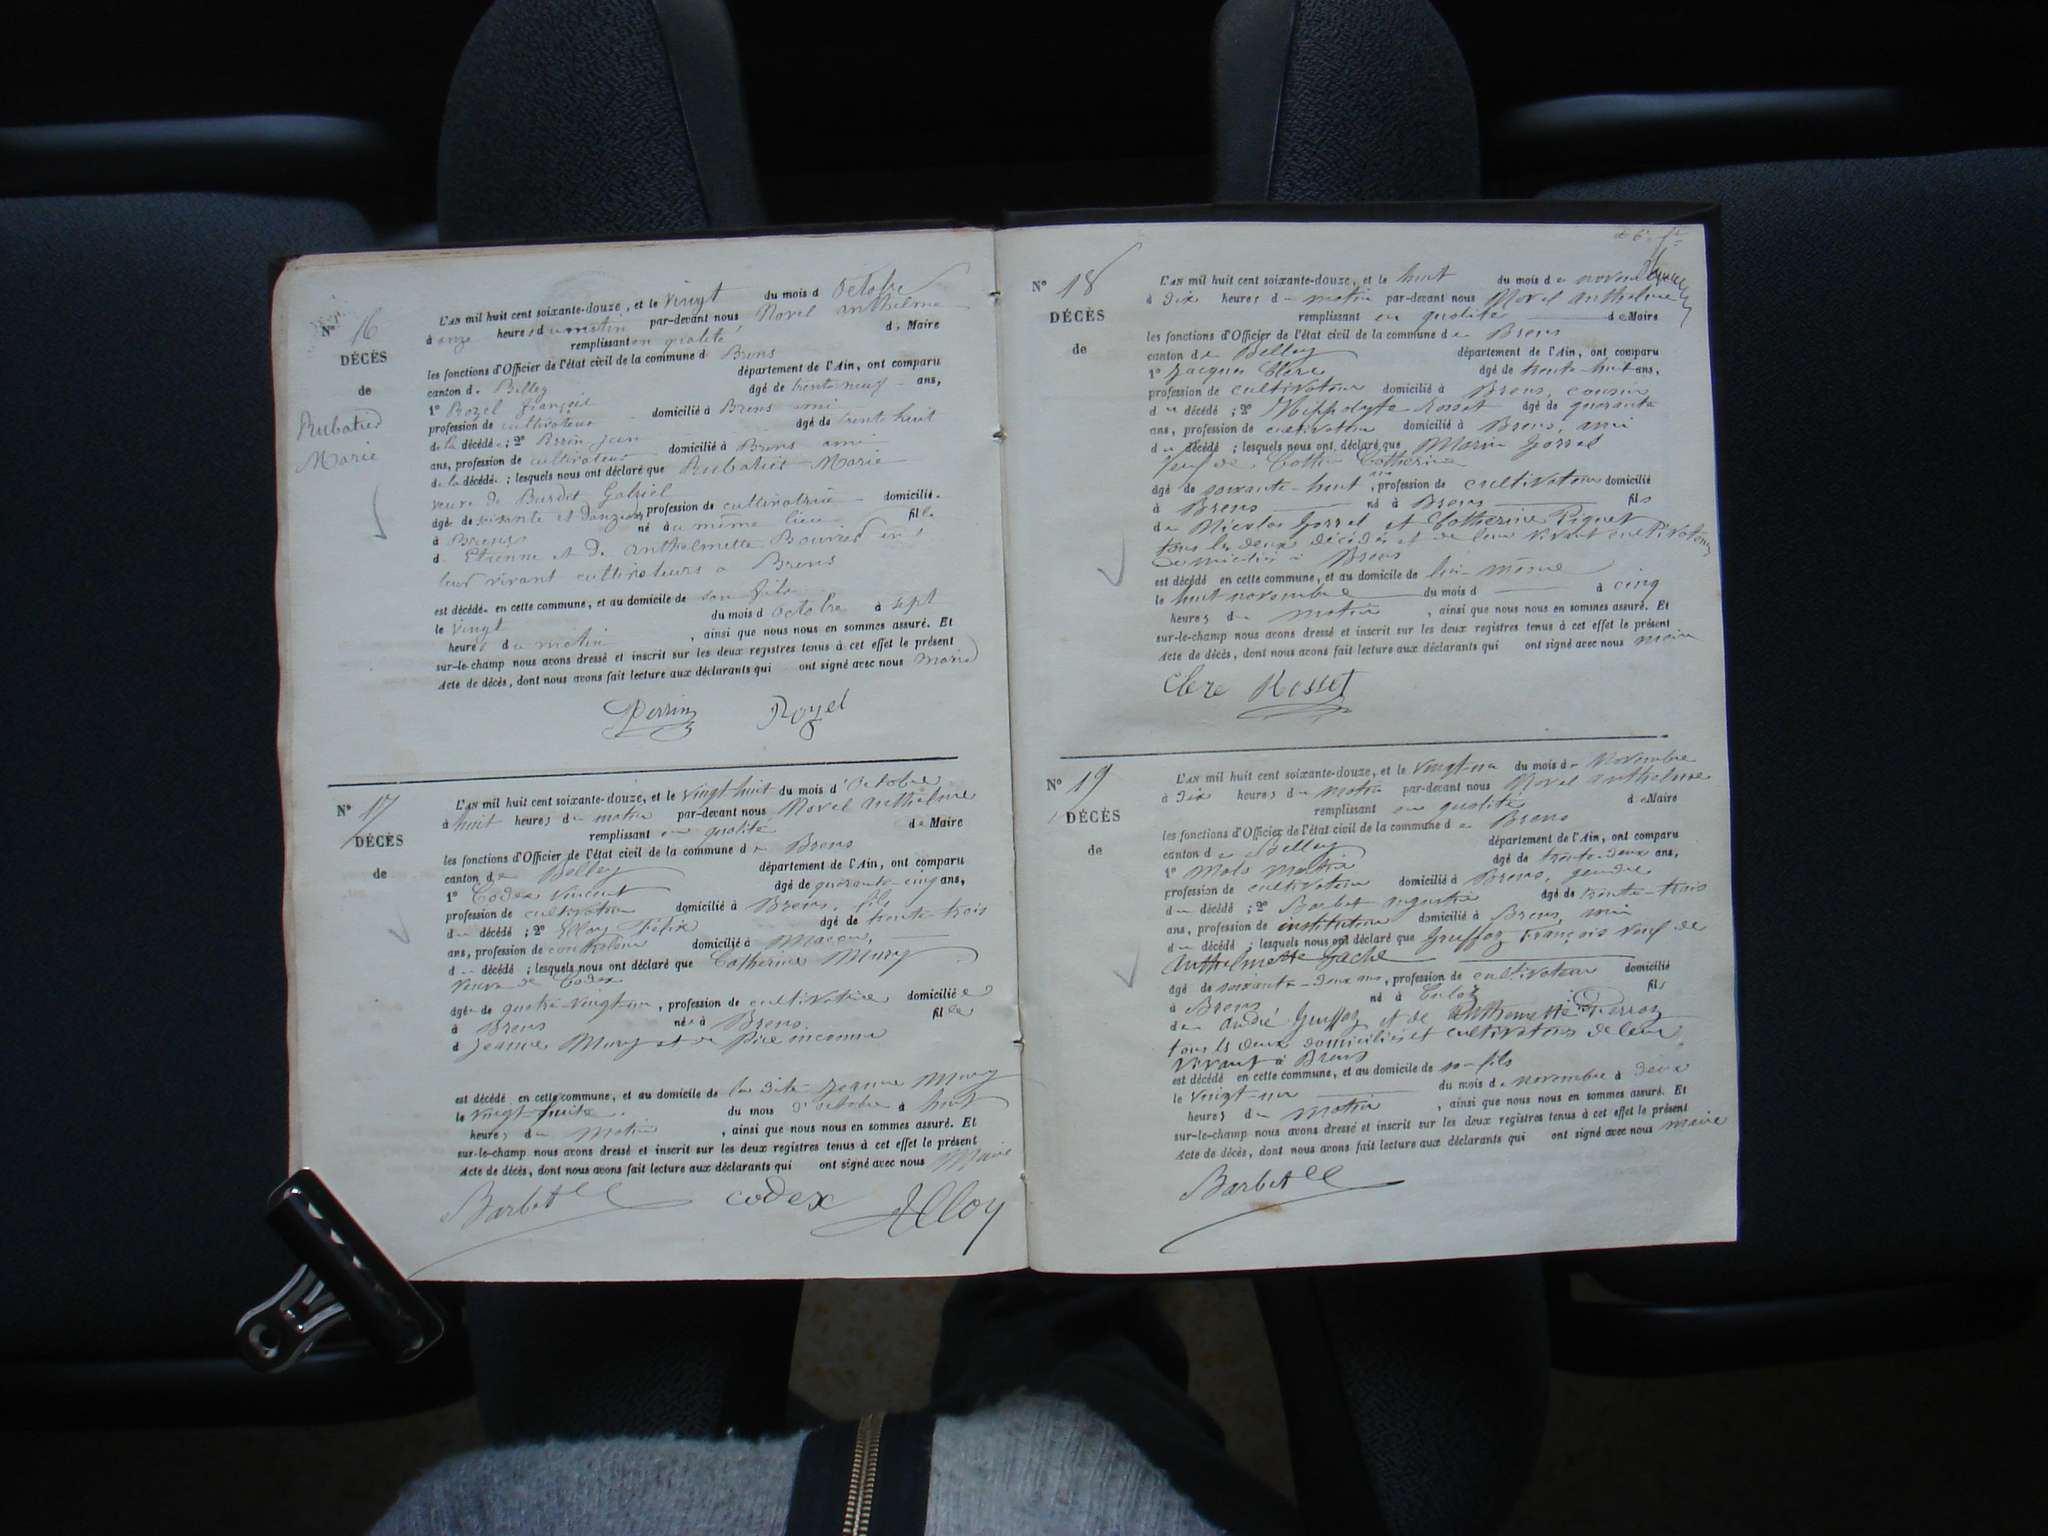 N° 16
DÉCÈS
de
Rubatied
Marie
L'AN mil huit cent soixante-douze, et le vingt du mois d octobre
à onze heures du matin par-devant nous Novel Anthelme
remplissant en qualité de Maire
les fonctions d'Officier de l'état civil de la commune d Brens
canton de Belley département de l'Ain, ont comparu
1° Rozel françois âgé de trente neuf ans,
profession de cultivateur domicilié à Brens ami
de la décédée ; 2° Perrin jean âgé de trente huit
ans, profession de cultivateur domicilié à Brens ami
de la décédée ; lesquels nous ont déclaré que Rubatied Marie
veuve de Burdet Gabriel
âgée de soixante et profession de cultivatrice domicilié
à Brens né au même lieu fille
d Etienne et de Anthelmette
leur vivant cultivateurs à Brens
est décédé en cette commune, et au domicile de son fils
le vingt du mois d octobre à sept
heures du matin, ainsi que nous nous en sommes assuré. Et
sur-le-champ nous avons dressé et inscrit sur les deux registres tenus à cet effet le présent
Acte de décès, dont nous avons fait lecture aux déclarants qui ont signé avec nous
Perrin Rozel
N° 17
DÉCÈS
de
L'AN mil huit cent soixante-douze, et le vingt-huit du mois d'Octobre
à huit heures du matin par-devant nous Novel Anthelme
remplissant en qualité de Maire
les fonctions d'Officier de l'état civil de la commune de Brens
canton de Belley département de l'Ain, ont comparu
1° Codex Vincent âgé de quarante-cinq ans,
profession de cultivateur domicilié à Brens, fils
du décédé ; 2° Alloy Félix âgé de trente-trois
ans, profession de domicilié à Macon,
d décédé ; lesquels nous ont déclaré que Catherine Mury
veuve de Codex
âgée de quatre-vingt-un, profession de cultivatrice domiciliée
à Brens née à Brens. fille
d Jeanne Mury et de Père inconnu
est décédé en cette commune, et au domicile de la dite Jeanne Mury
le vingt-huit du mois d'octobre à huit
heures du matin, ainsi que nous nous en sommes assuré. Et
sur-le-champ nous avons dressé et inscrit sur les deux registres tenus à cet effet le présent
Acte de décès, dont nous avons fait lecture aux déclarants qui ont signé avec nous Maire
Barbet codex Alloy
N° 18
DÉCÈS
de
L'AN mil huit cent soixante-douze, et le huit du mois de novembre
à dix heures du matin par-devant nous Novel Anthelme
remplissant en qualité de Maire
les fonctions d'Officier de l'état civil de la commune de Brens
canton de Belley département de l'Ain, ont comparu
1° Jacques Clerc âgé de trente-huit ans,
profession de cultivateur domicilié à Brens, cousin
du décédé ; 2° Hippolyte Rosset âgé de quarante
ans, profession de cultivateur domicilié à Brens, ami
du décédé ; lesquels nous ont déclaré que Marin Gorrel
veuf de Catherine
âgé de soixante-huit ans, profession de cultivateur domicilié
à Brens né à Brens fils
de Nicolas Gorrel et Catherine Piquet
tous les deux décédés et de leur vivant cultivateurs
domiciliés à Brens
est décédé en cette commune, et au domicile de lui-même
le huit novembre du mois d à cinq
heures du matin, ainsi que nous nous en sommes assuré. Et
sur-le-champ nous avons dressé et inscrit sur les deux registres tenus à cet effet le présent
Acte de décès, dont nous avons fait lecture aux déclarants qui ont signé avec nous maire
Clerc Rosset
N° 19
DÉCÈS
de
L'AN mil huit cent soixante-douze, et le vingt-un du mois de Novembre
à dix heures du matin par-devant nous Novel Anthelme
remplissant en qualité de Maire
les fonctions d'Officier de l'état civil de la commune de Brens
canton de Belley département de l'Ain, ont comparu
1° âgé de trente-deux ans,
profession de cultivateur domicilié à Brens, gendre
du décédé ; 2° Barbet âgé de trente-trois
ans, profession de instituteur domicilié à Brens, ami
du décédé ; lesquels nous ont déclaré que Gruffaz François veuf de
Anthelmette
âgé de soixante-deux ans, profession de cultivateur domicilié
à Brens né à Culoz fils
de André Gruffaz et de Anthelmette Perroz
tous les deux domiciliés et cultivateurs de leur
vivant à Brens
est décédé en cette commune, et au domicile de son fils
le vingt-un du mois de novembre à deux
heures du matin, ainsi que nous nous en sommes assuré. Et
sur-le-champ nous avons dressé et inscrit sur les deux registres tenus à cet effet le présent
Acte de décès, dont nous avons fait lecture aux déclarants qui ont signé avec nous maire
Barbet